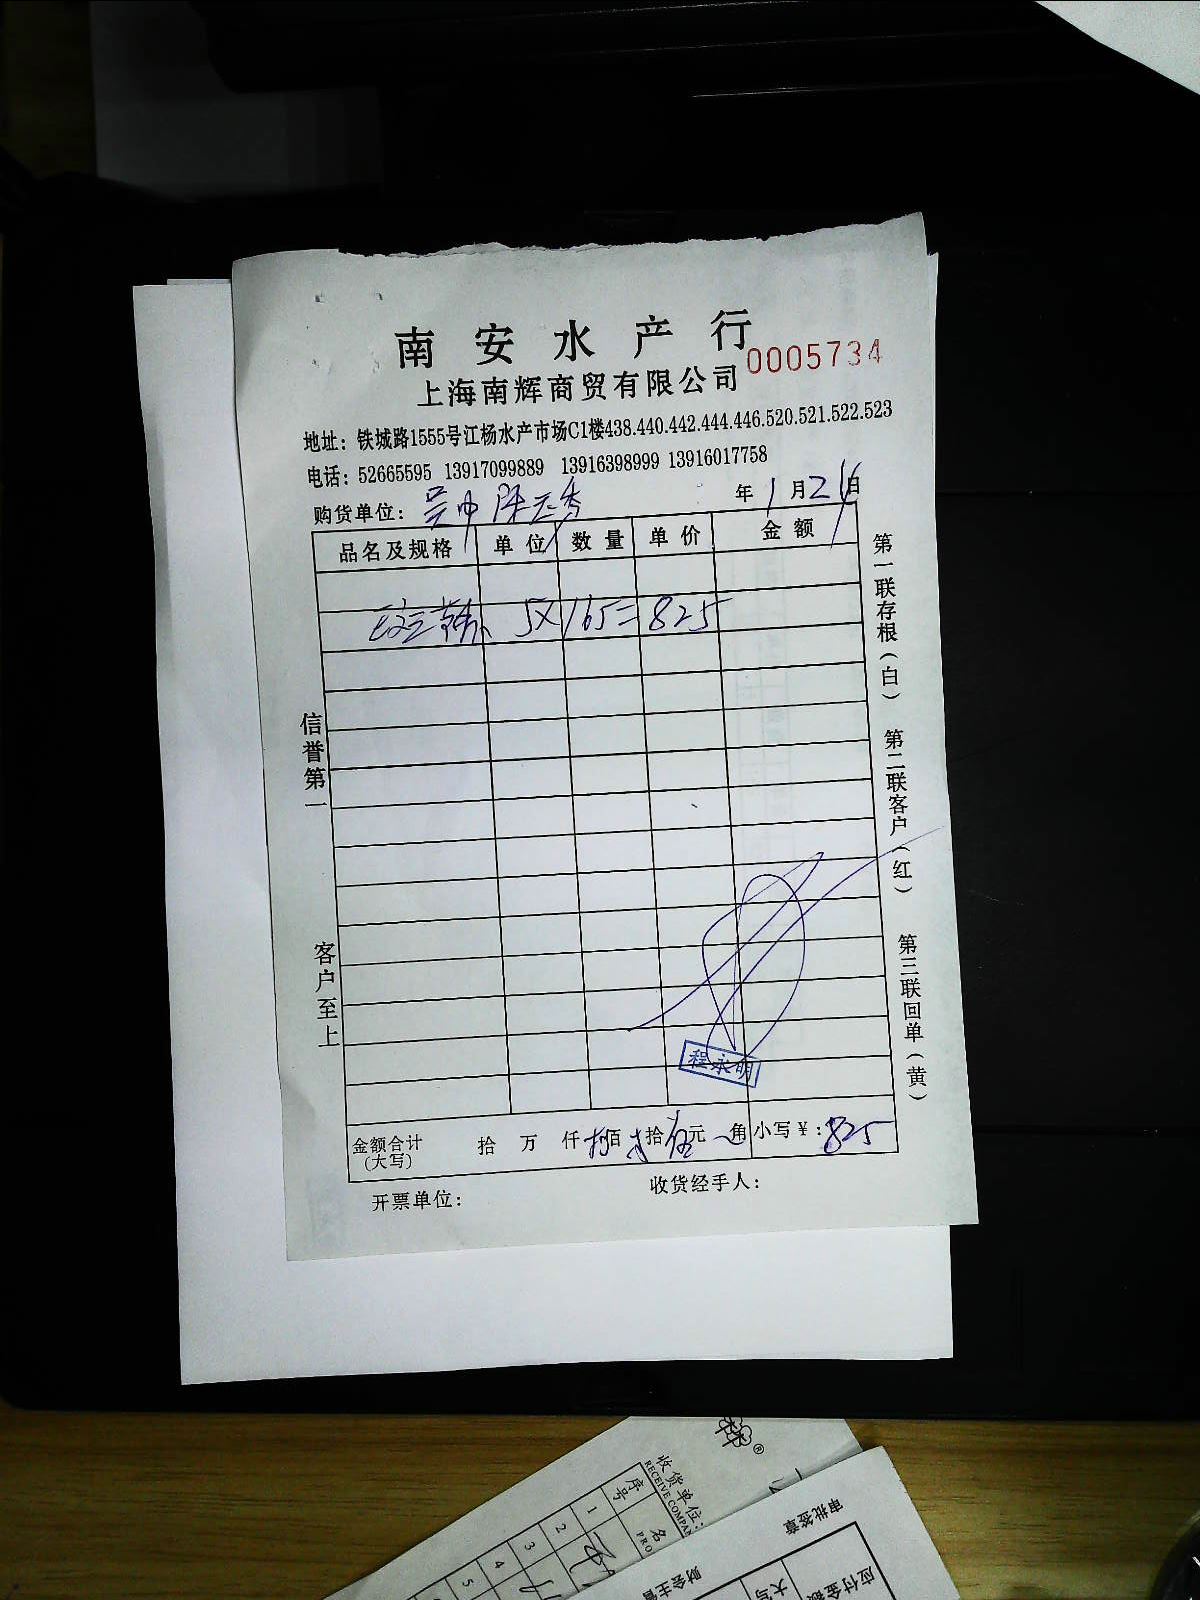 南安水产行
0005734
上海南辉商贸有限公司
地址：铁城路1555号江杨水产市场C1楼438.440.442.444.446.520.521.522.523
电话：52665595 13917099889 13916398999 13916017758
购货单位： 年1月26日
品名及规格 单位 数量 单价 金额
5×165=825
信誉第一
客户至上
第一联存根（白）
第二联客户（红）
第三联回单（黄）
程永明
金额合计（大写） 拾 万 仟 捌佰 拾 伍元 角 小写￥：825
开票单位： 收货经手人：
收货单位：
RECEIVE COMPAN
序号 名
PRO
1
2
3
4
5
审批签章
财会主管
应付金额
大写